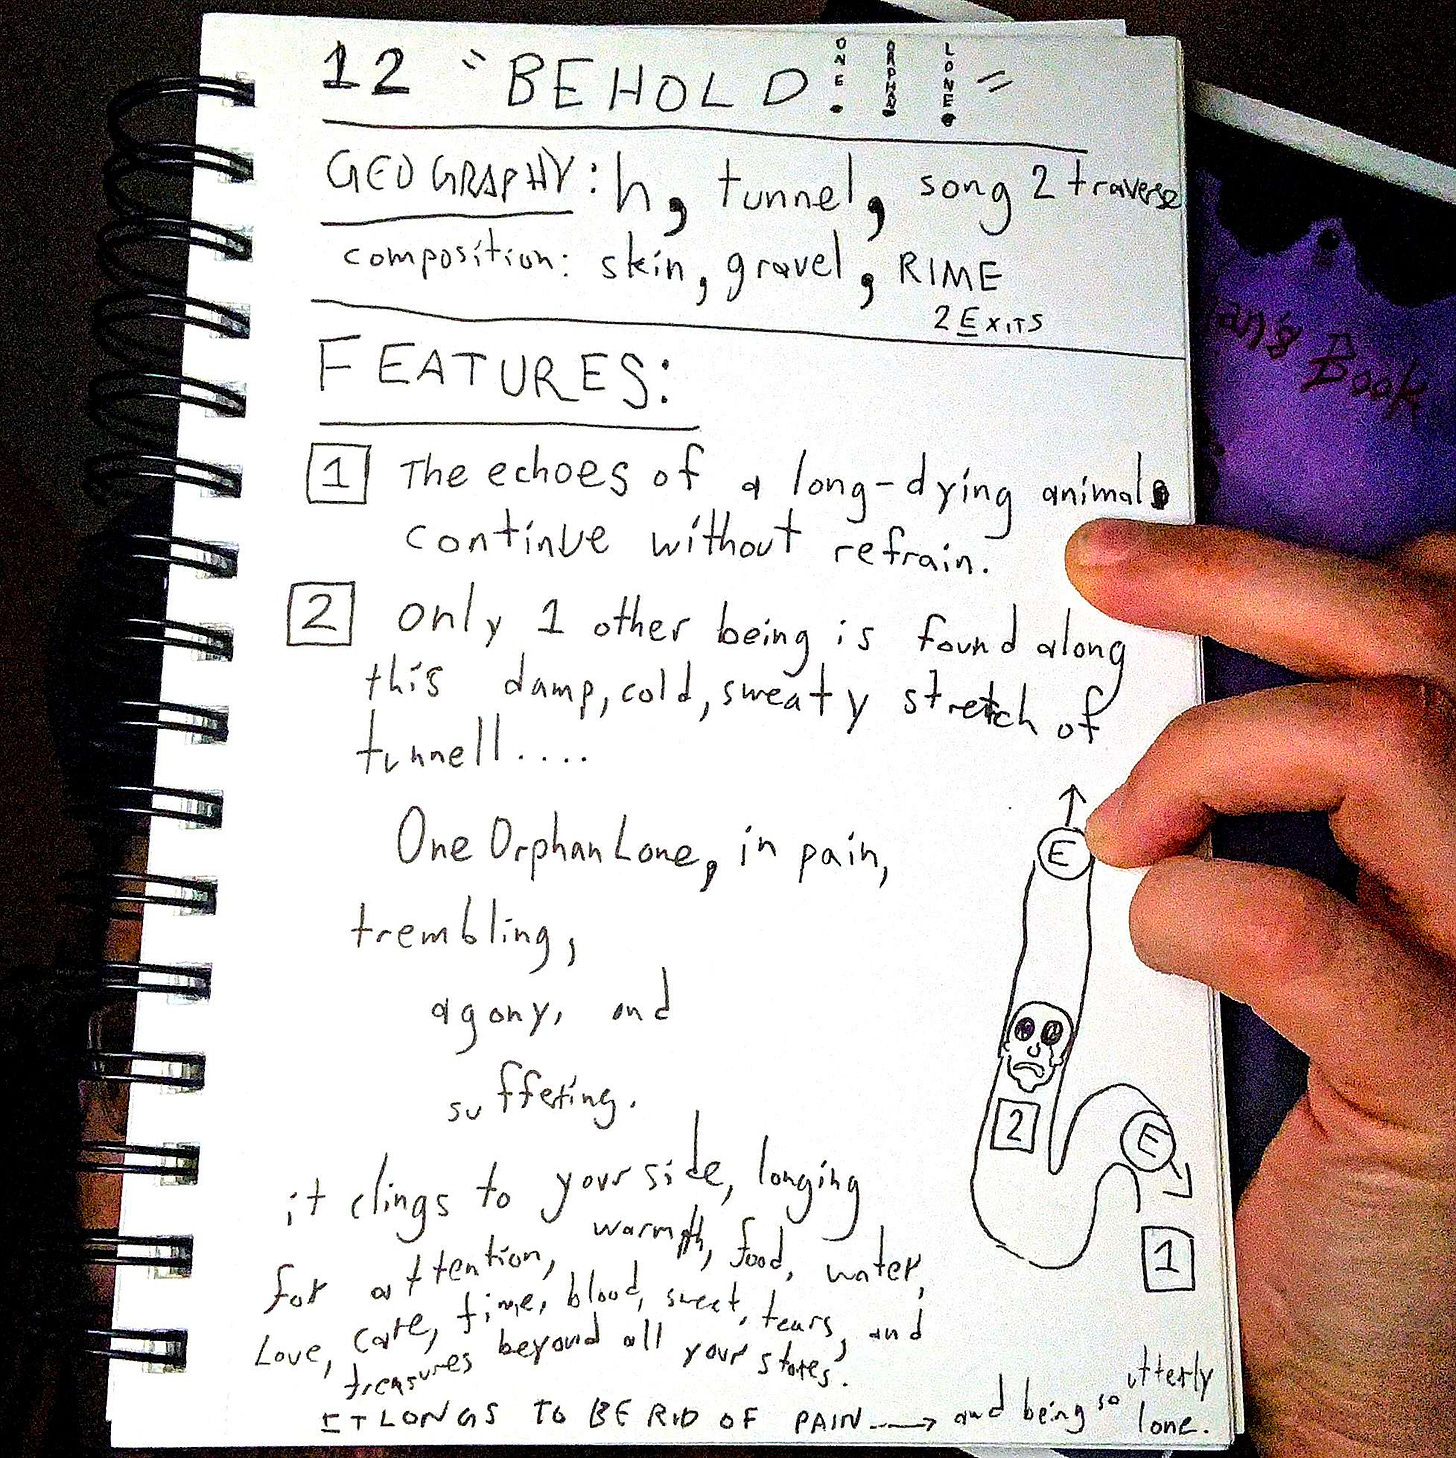 12 "BEHOLD: ONE! ORPHAN! LONE!"
GEOGRAPHY: h, tunnel, song 2 traverse
composition: skin, gravel, RIME
2 EXITS
FEATURES:
1 The echoes of a long-dying animal
continue without refrain.
2 Only 1 other being is found along
this damp, cold, sweaty stretch of
tunnell....
One Orphan Lone, in pain,
trembling,
agony, and
suffering.
it clings to your side, longing
for attention, warmth, food, water,
Love, care, time, blood, sweat, tears, and
treasures beyond all your stores.
IT LONGS TO BE RID OF PAIN → and being so utterly
lone.
E
2
E
1
an's Book